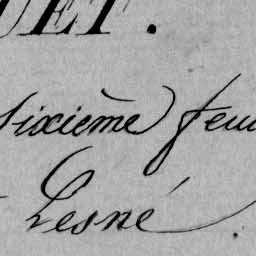 UET.
Sixième feui
Lesné